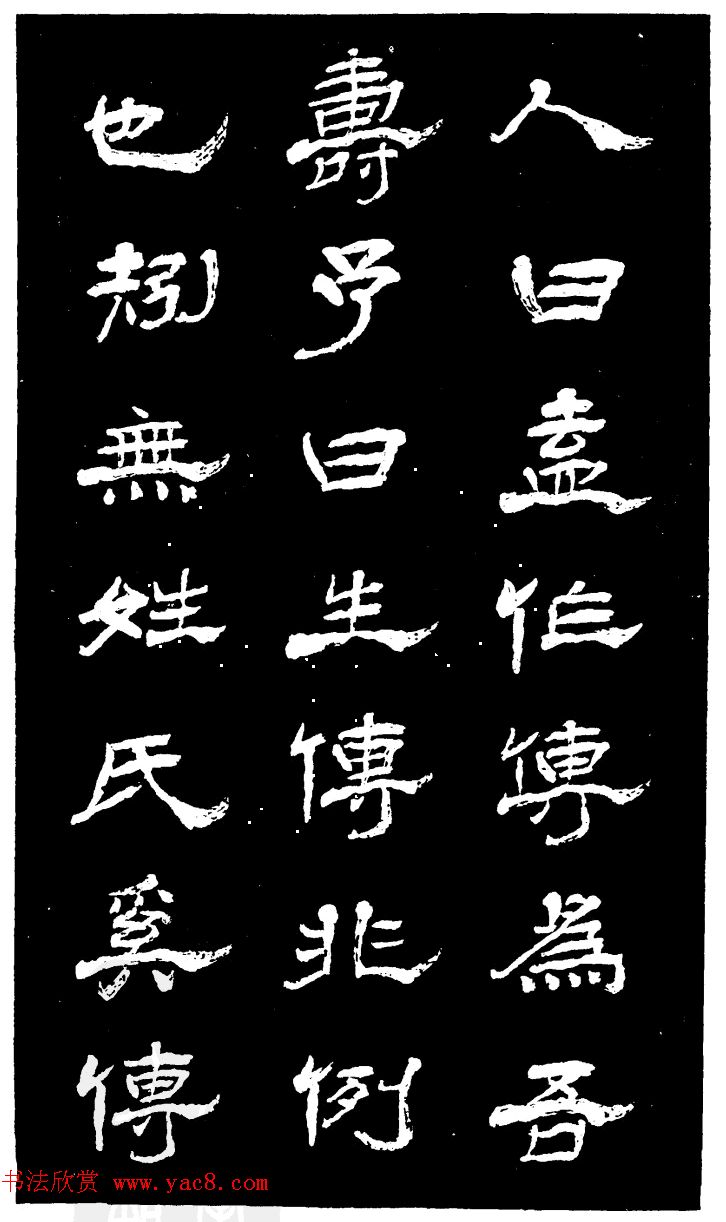 人曰盍作傳為吾
壽予曰生傳非例
也矧無姓氏奚傳
书法欣赏 www.yac8.com